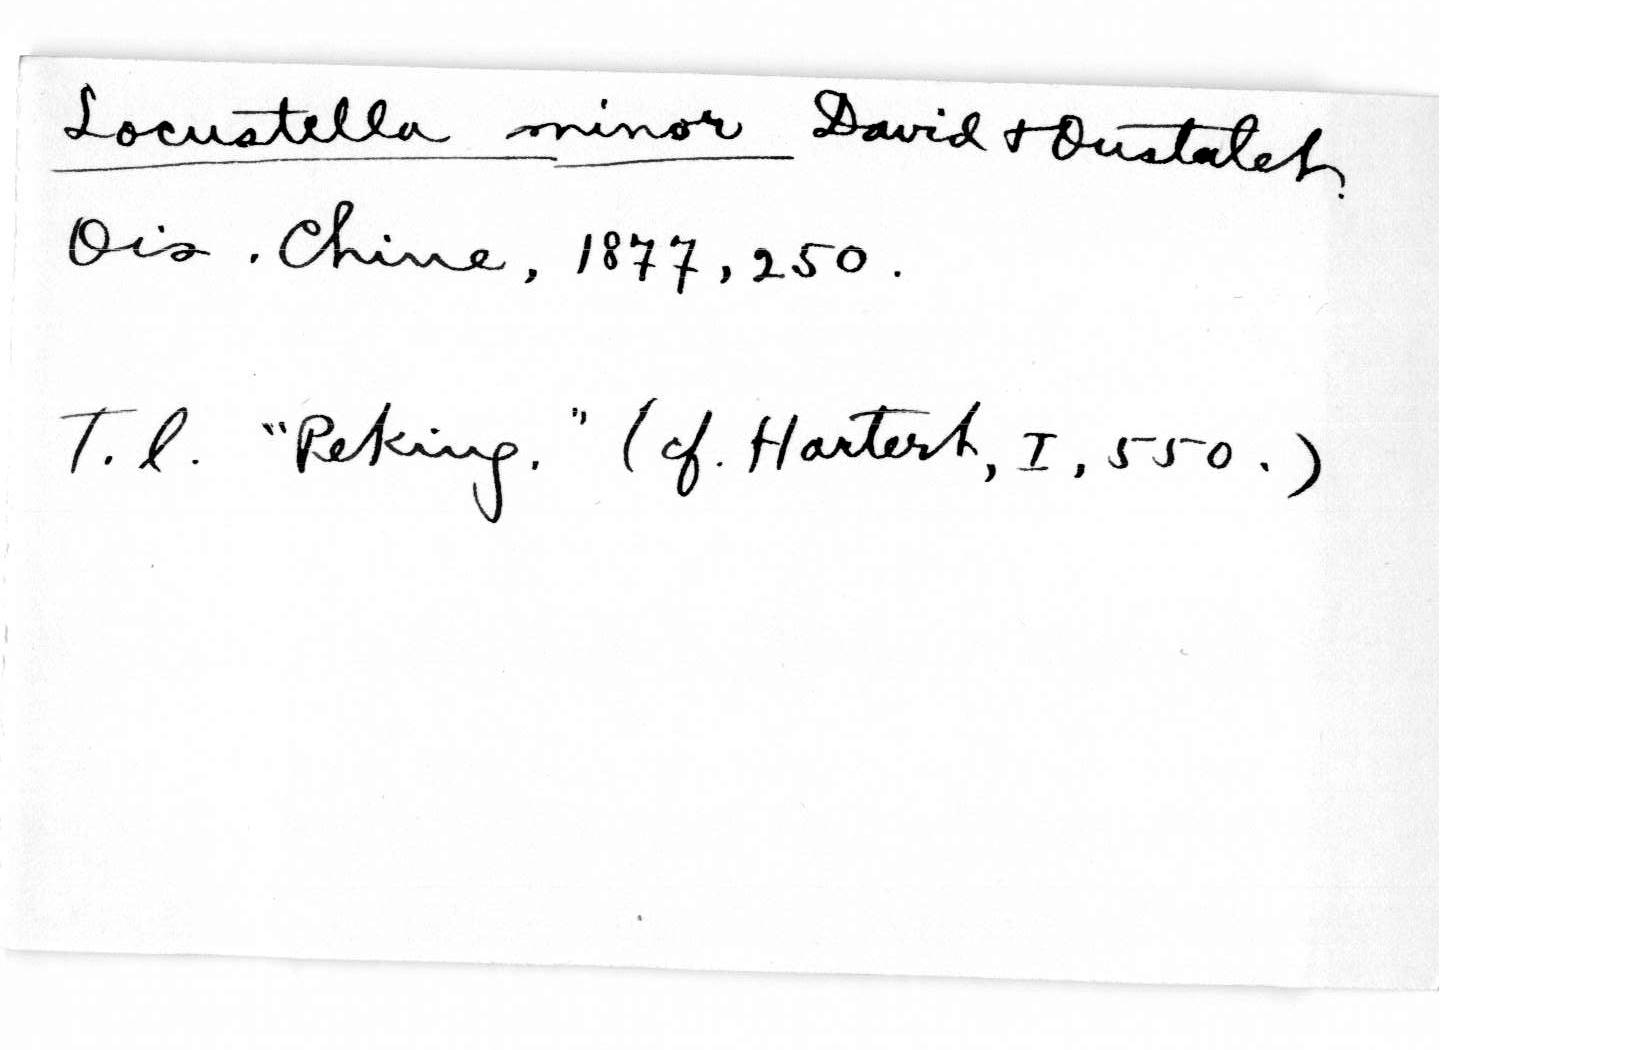 Locustella minor David & Oustalet.
Ois. Chine, 1877, 250.
T. l. "Peking." (cf. Hartert, I, 550.)